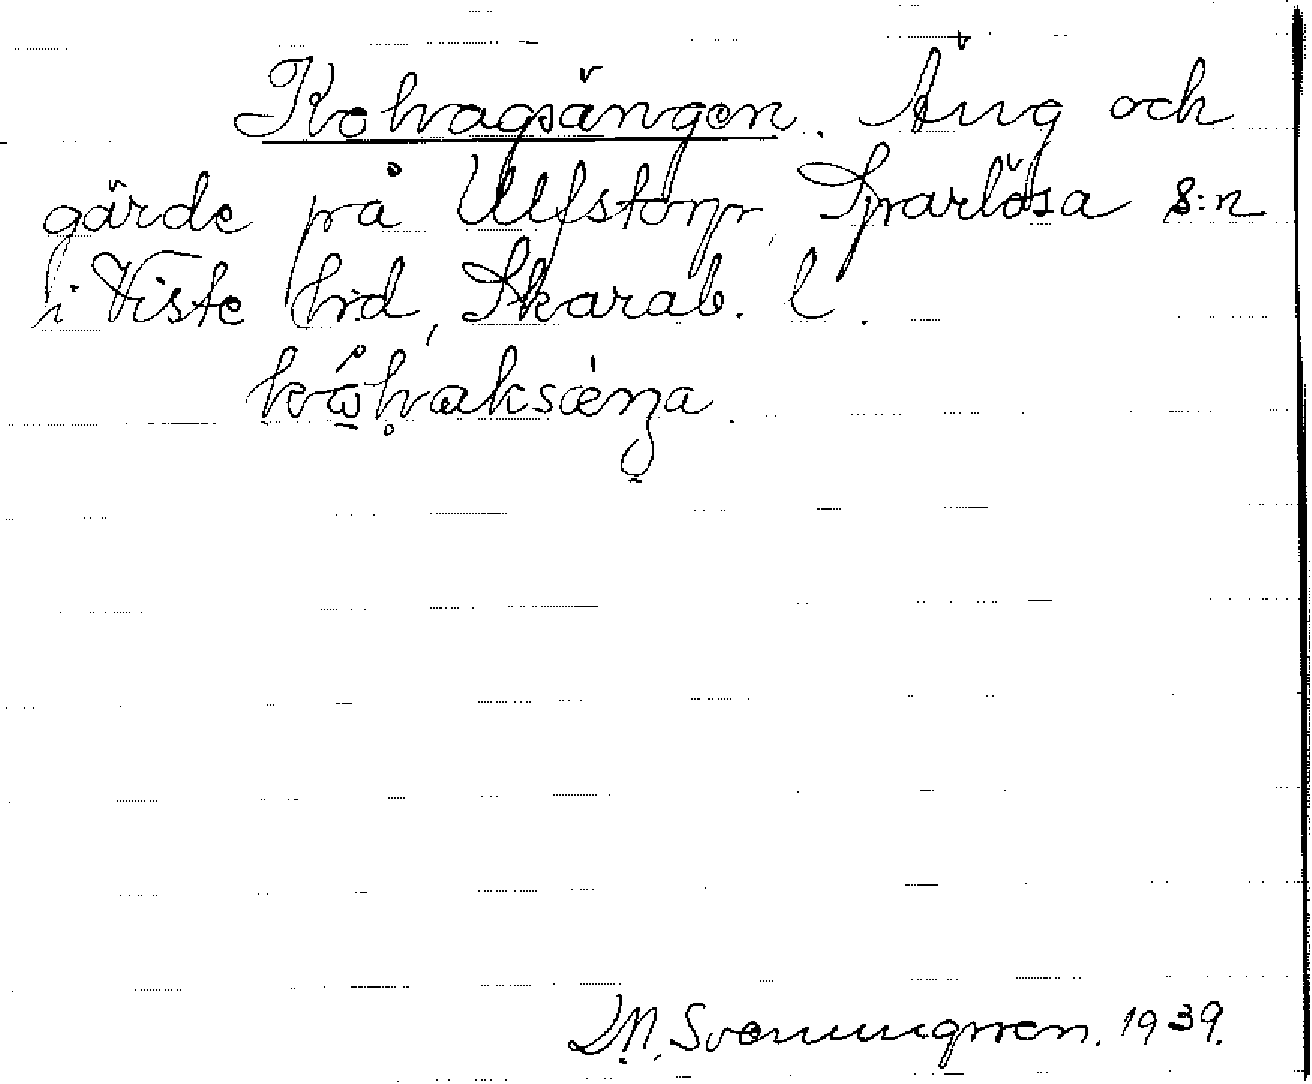 Kohagsängen. Äng och
gärde på Ulfstorp, Sparlösa s:n
i Viste hrd, Skarab. l.
D.N. Svenningsson. 1939.